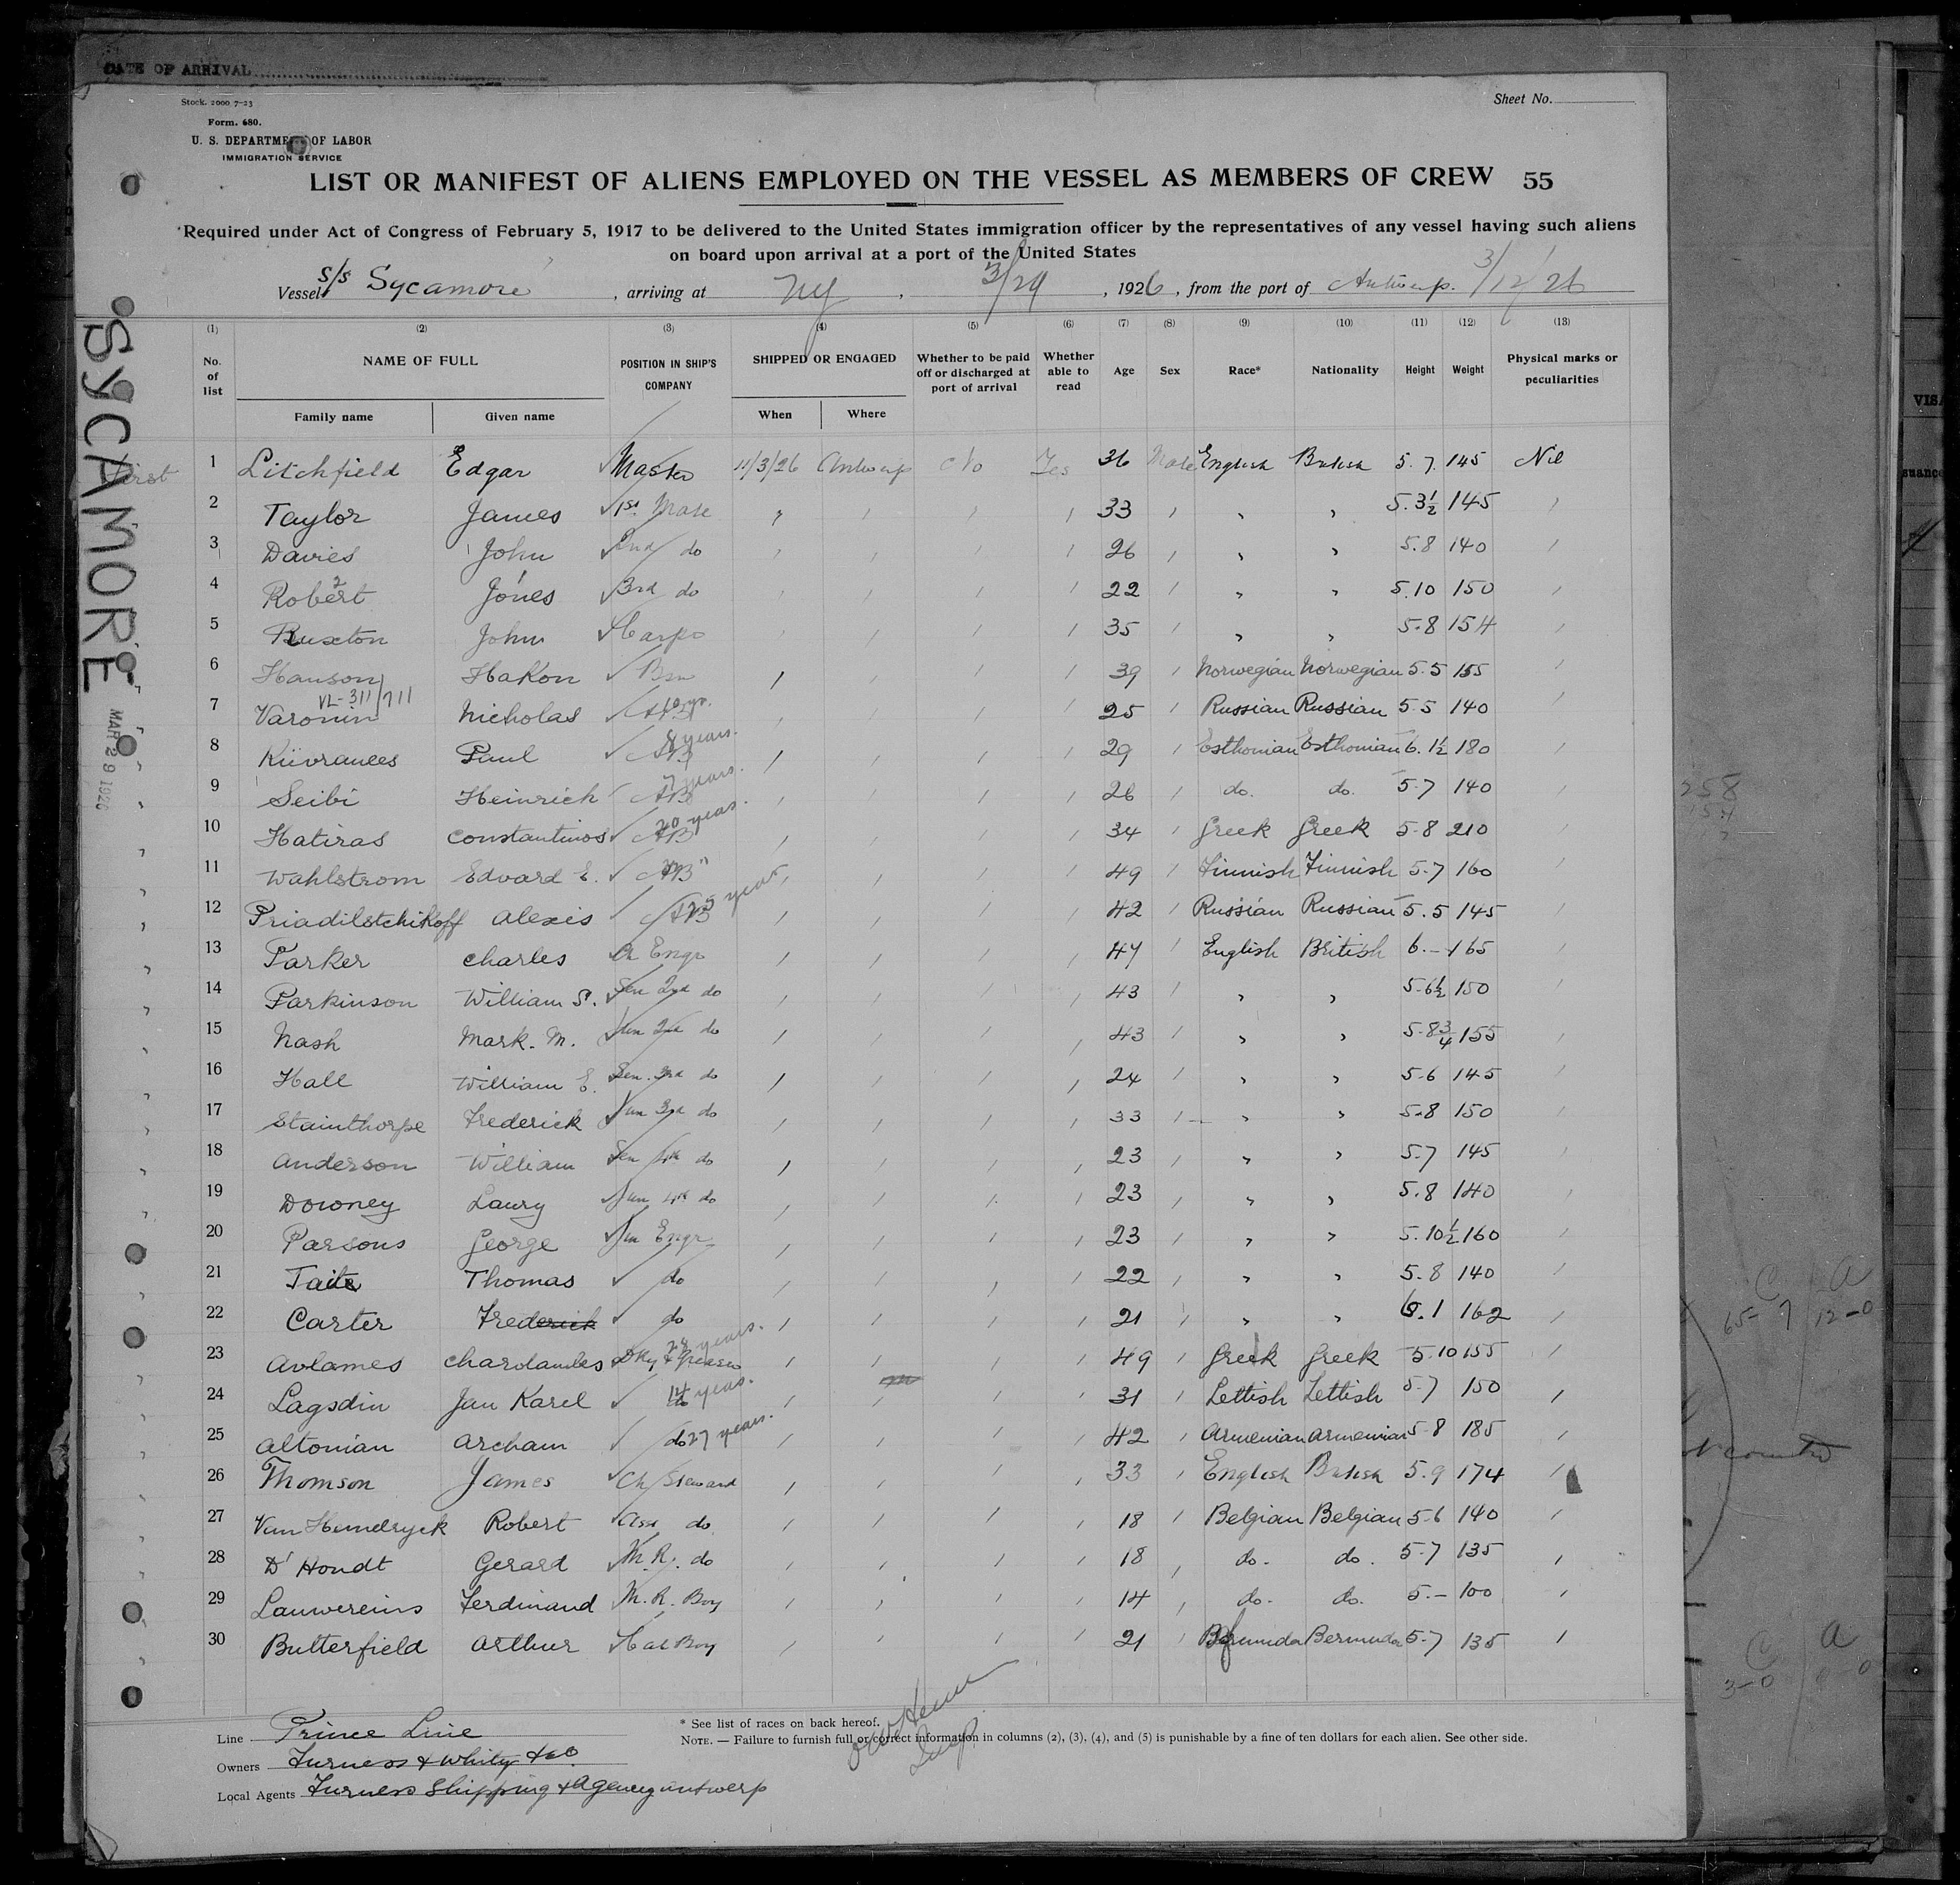 DATE OF ARRIVAL
Stock. 2000 7-23
Form. 680.
U. S. DEPARTMENT OF LABOR
IMMIGRATION SERVICE
Sheet No.
LIST OR MANIFEST OF ALIENS EMPLOYED ON THE VESSEL AS MEMBERS OF CREW 55
Required under Act of Congress of February 5, 1917 to be delivered to the United States immigration officer by the representatives of any vessel having such aliens
on board upon arrival at a port of the United States
Vessel s/s Sycamore, arriving at NY, 3/29, 1926, from the port of Antwerp. 3/12/26
(1) (2) (3) (4) (5) (6) (7) (8) (9) (10) (11) (12) (13)
No. of list NAME OF FULL POSITION IN SHIP'S COMPANY SHIPPED OR ENGAGED Whether to be paid off or discharged at port of arrival Whether able to read Age Sex Race* Nationality Height Weight Physical marks or peculiarities
Family name Given name When Where
SYCAMORE
MAR 29 1926
First
1 Litchfield Edgar Master 11/3/26 Antwerp No Yes 36 Male English British 5.7. 145 Nil
2 Taylor James 1st Mate 33 5.3½ 145
3 Davies John 2nd do 26 5.8 140
4 Robert Jones 3rd do 22 5.10 150
5 Ruxton John Carp 35 5.8 154
6 Hanson Hakon Bsn 39 Norwegian Norwegian 5.5 155
VL-311/711
7 Varonin Nicholas AB 25 Russian Russian 5.5 140
8 Kiivranees Paul AB 8 years. 29 Esthonian Esthonian 6.1½ 180
9 Seibi Heinrich AB 7 years. 26 do. do. 5.7 140
10 Hatiras Constantinos AB 20 years. 34 Greek Greek 5.8 210
11 Wahlstrom Edvard E. AB 49 Finnish Finnish 5.7 160
12 Priadilstchikoff Alexis AB 25 years 42 Russian Russian 5.5 145
13 Parker Charles Ch Engr 47 English British 6.- 165
14 Parkinson William S. Sen 2nd do 43 5.6½ 150
15 Nash Mark. M. Jun 2nd do 43 5.8¾ 155
16 Hall William E. Sen. 3rd do 24 5.6 145
17 Stainthorpe Frederick Jun 3rd do 33 5.8 150
18 Anderson William Sen 4th do 23 5.7 145
19 Downey Laury Jun 4th do 23 5.8 140
20 Parsons George Jun Engr 23 5.10½ 160
21 Taite Thomas do 22 5.8 140
22 Carter Frederick do 21 6.1 162
23 Avlames Charalambes Dky & Greaser 28 years. 49 Greek Greek 5.10 155
24 Lagsdin Jan Karel do 14 years. 31 Lettish Lettish 5.7 150
25 Altonian Archam do 27 years. 42 Armenian Armenian 5.8 185
26 Thomson James Ch Steward 33 English British 5.9 174
27 Van Hemelryck Robert Asst do 18 Belgian Belgian 5.6 140
28 D'Hondt Gerard M.R. do 18 do. do. 5.7 135
29 Lauwereins Ferdinand M.R. Boy 14 do. do. 5.- 100
30 Butterfield Arthur Cab Boy 21 Bermuda Bermuda 5.7 135
Line Prince Line
Owners Furness & Withy & Co
Local Agents Furness Shipping & Agency Antwerp
* See list of races on back hereof.
NOTE. — Failure to furnish full or correct information in columns (2), (3), (4), and (5) is punishable by a fine of ten dollars for each alien. See other side.
258
C A
65-7 12-0
C A
3-0